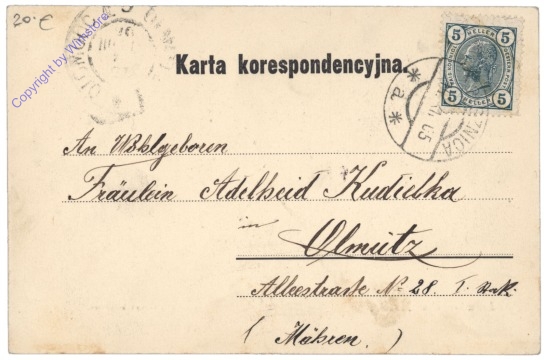 20.-€
Copyright by Winstore
Karta korespondencyjna.
5 HELLER 5
5 HELLER 5
*a*
05
An Wohlgeboren
Fräulein Adelheid Kudielka
in
Olmütz
Alleestraße No 28 I. Stock.
(Mähren.)